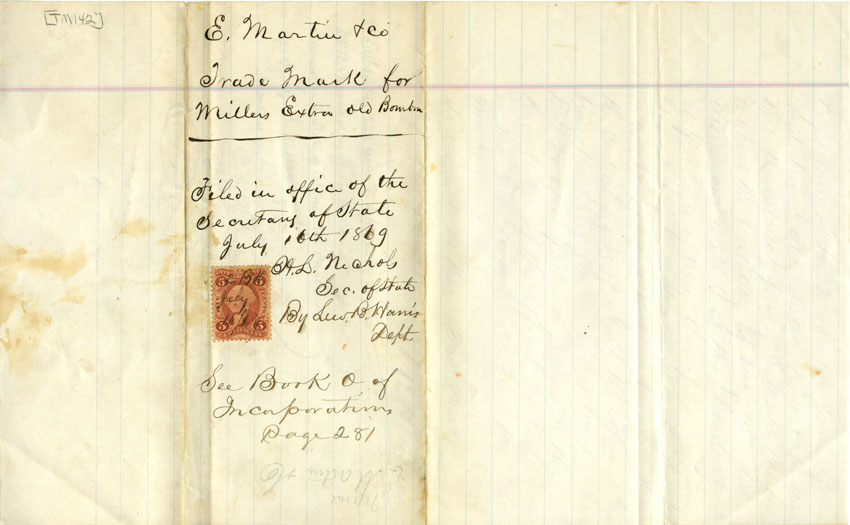 [TM142]
E. Martin & Co
Trade Mark for
Millers Extra Old Bourbon
Filed in office of the
Secretary of State
July 16th 1869
H. L. Nichols
Sec. of State
By Lew. B. Harris
Dept
5 5
July
5 5
See Book O of
Incorporations
Page 281
name
E Martin & Co